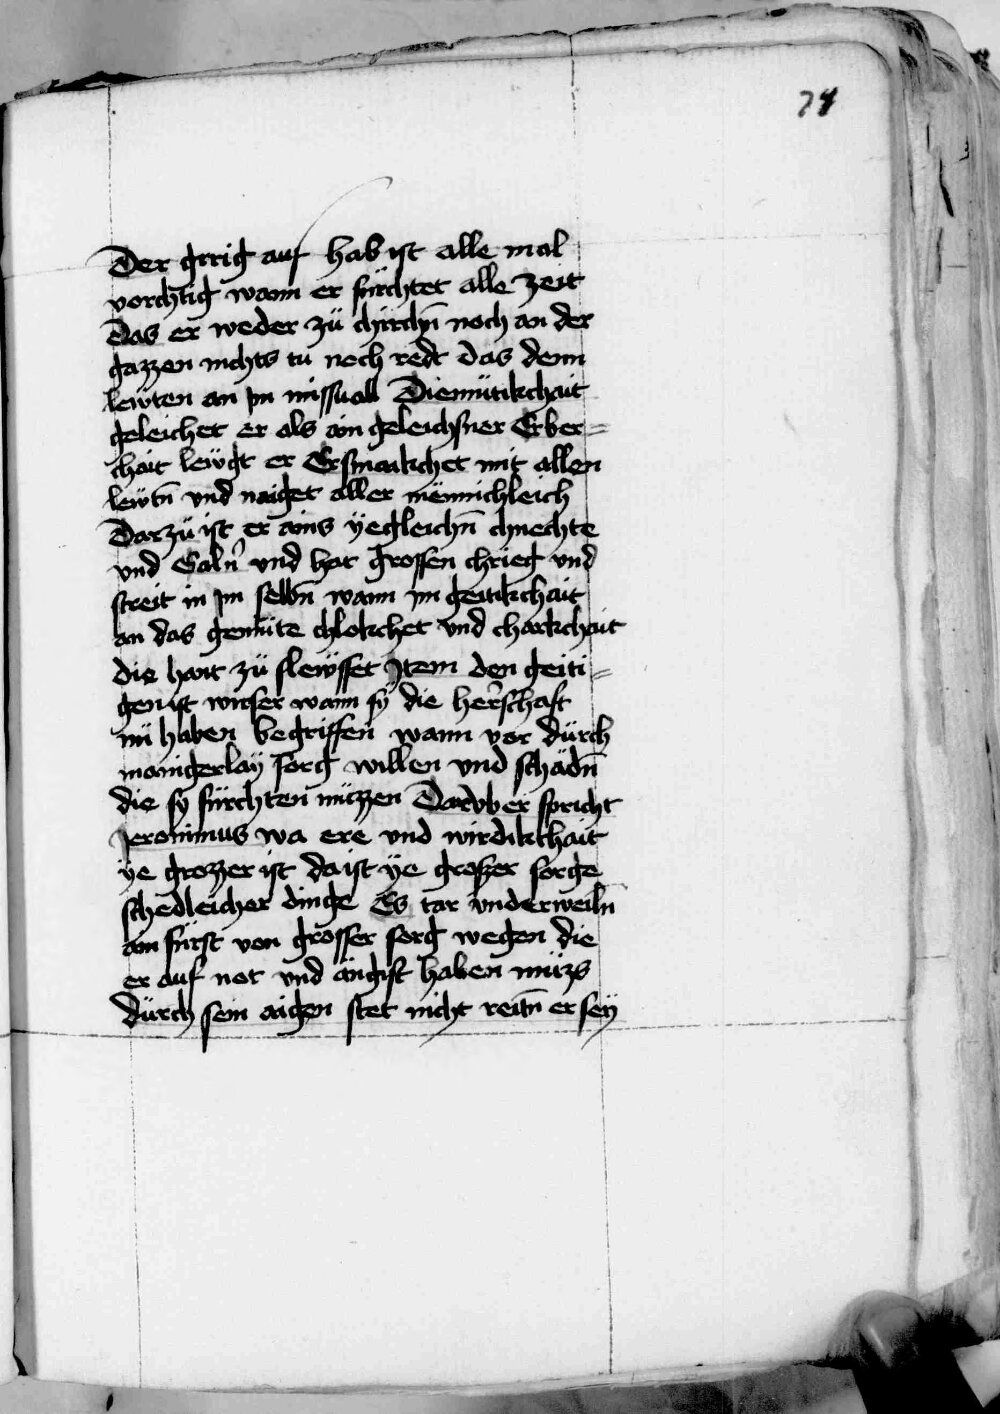 74
Der girig auf hab ist alle mal
vorchtig wann er fürchtet alle zeit
Das er weder zü chirchn̄ noch an der
gazzen nichts tu noch redt das denn
lewten an ym missuall Diemütikchait
geleichet er als ain geleichsner Erber=
chait lewgt er Er smaikchet mit allen
lewtn̄ vnd naiget aller mënnichleich
Darzü ist er ains ÿegleichn̄ chnechte
vnd und hat grossen chrieg vnd
streit in ym selbn̄ wann ym geitikchait
an das gemüte chlokchet vnd charkchait
die hant zü slewsset Item den geiti=
gen ist wirser wann sÿ die herrschaft
nü haben begriffen wann vor dürch
manigerlaÿ sorg willen vnd schädn̄
die sy fürchten müzzen Darvber spricht
Jeronimus wa ere vnd wirdikchait
ÿe grozzer ist da ist ÿe groszer sorge
schedleicher dinge Es tar vnderweiln̄
ain fürst von grosser sorg wegen die
er auf not vnd angist haben müzs
dürch sein aigen stet nicht reitn̄ er seÿ